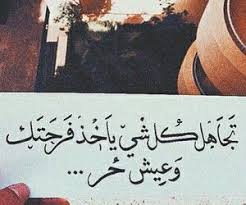 تجَاهَل كُل شيْ يَاخْذ فَرحَتك
وَعِيش حُر ...